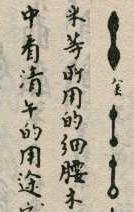 米等所用的细腰木
中看清午的用途